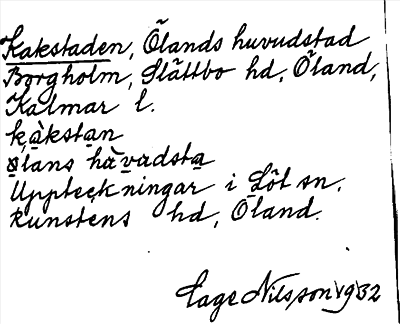 Kakstaden, Ölands huvudstad
Borgholm, Slättbo hd, Öland,
Kalmar l.
kạ̀kstan
ølans hàvudsta
Uppteckningar i Löt sn.
Runstens hd, Öland.
Tage Nilsson 1932